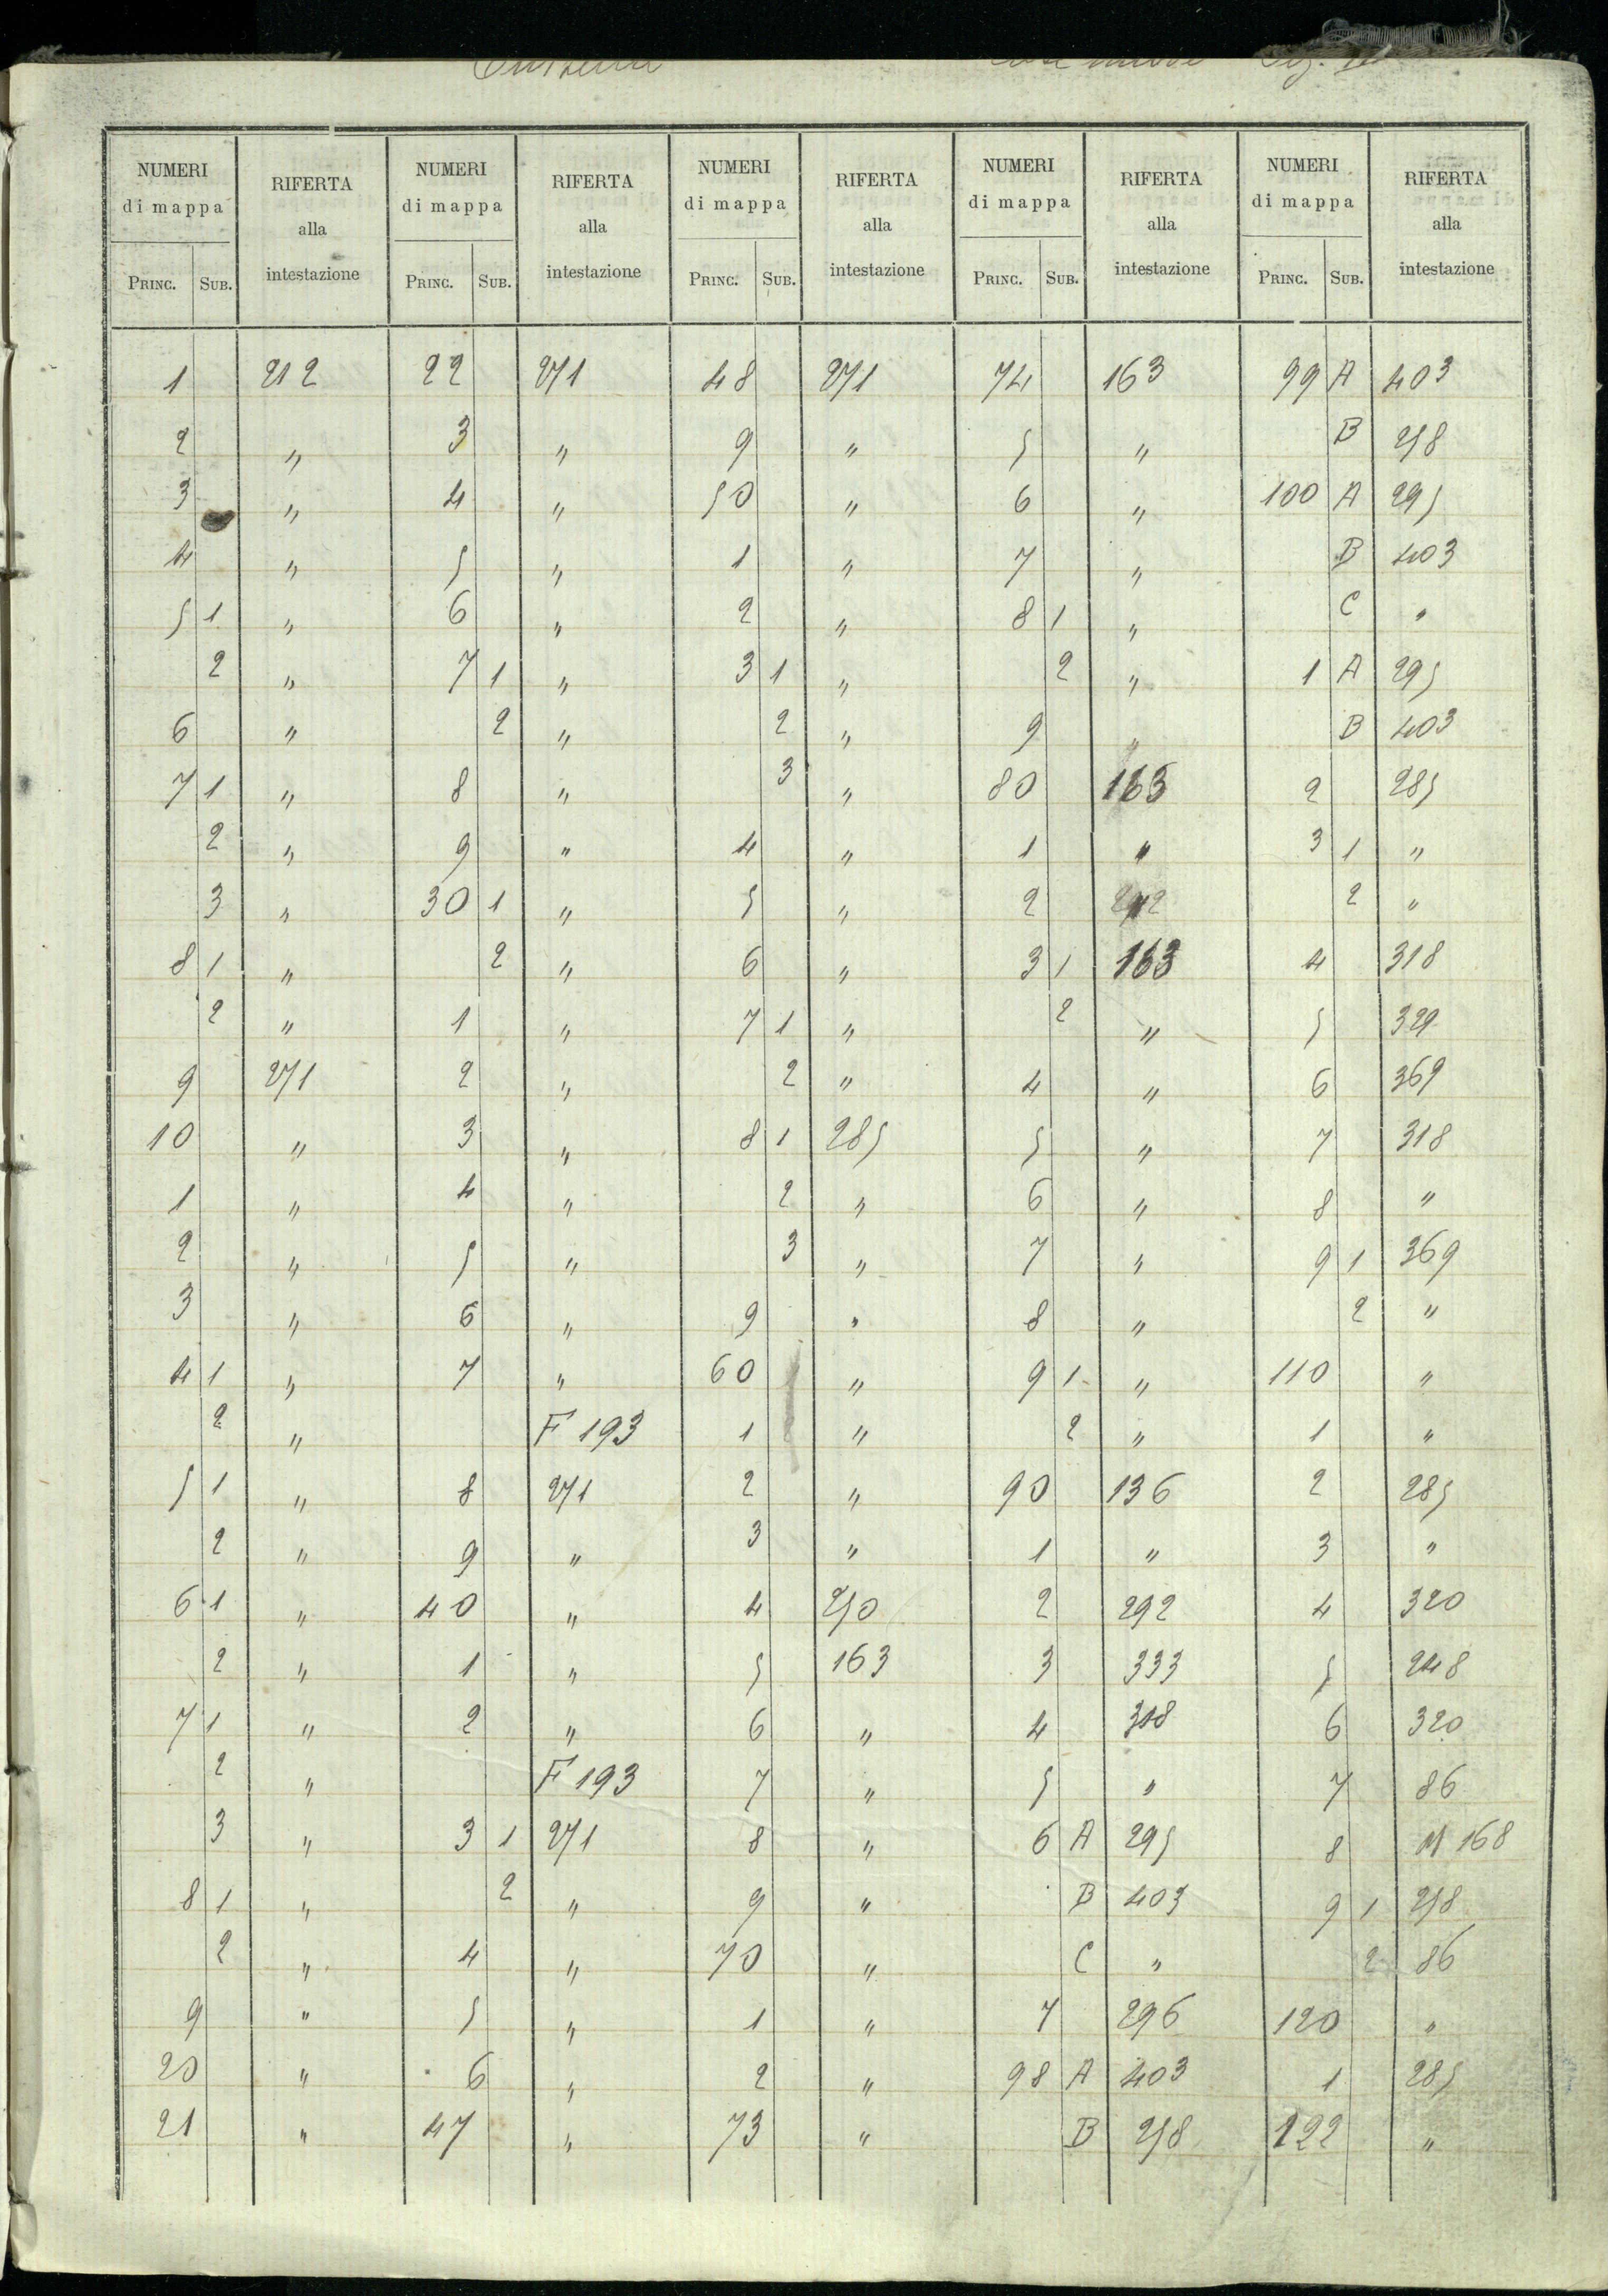 NUMERI di mappa RIFERTA alla intestazione NUMERI di mappa RIFERTA alla intestazione NUMERI di mappa RIFERTA alla intestazione NUMERI di mappa RIFERTA alla intestazione NUMERI di mappa RIFERTA alla intestazione
PRINC. SUB. PRINC. SUB. PRINC. SUB. PRINC. SUB. PRINC. SUB.
1 212 22 271 48 271 74 163 99 A 403
2 " 3 " 9 " 5 " B 258
3 " 4 " 50 " 6 " 100 A 295
4 " 5 " 1 " 7 " B 403
5 1 " 6 " 2 " 8 1 " C "
2 " 7 1 " 3 1 " 2 " 1 A 295
6 " 2 " 2 " 9 " B 403
7 1 " 8 " 3 " 80 163 2 285
2 " 9 " 4 " 1 " 3 1 "
3 " 30 1 " 5 " 2 2 "
8 1 " 2 " 6 " 3 1 163 4 318
2 " 1 " 7 1 " 2 " 5 329
9 271 2 " 2 " 4 " 6 369
10 " 3 " 8 1 285 5 " 7 318
1 " 4 " 2 " 6 " 8 "
2 " 5 " 3 " 7 " 9 1 369
3 " 6 " 9 " 8 " 2 "
4 1 " 7 " 60 " 9 1 " 110 "
2 " F 193 1 " 2 " 1 "
5 1 " 8 271 2 " 90 136 2 285
2 " 9 " 3 " 1 " 3 "
6 1 " 40 " 4 250 2 292 4 320
2 " 1 " 5 163 3 333 5 248
7 1 " 2 " 6 " 4 318 6 320
2 " F 193 7 " 5 " 7 86
3 " 3 1 271 8 " 6 A 295 8 M 168
8 1 " 2 " 9 " B 403 9 1 258
2 " 4 " 70 " C " 2 86
9 " 5 " 1 " 7 296 120 "
20 " 6 " 2 " 98 A 403 1 285
21 " 47 " 73 " B 258 122 "